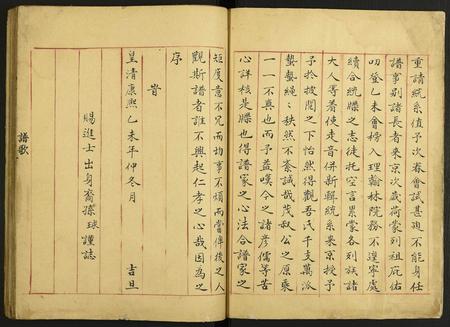 重請統系值予次春會試甚迫不能身任
譜事別諸長者來京次歲荷蒙列祖庇佑
叨登乙未會榜入理翰林院務不遑寧處
續合統牒之志徒托空言累蒙各列族諸
大人等着使走音併新輯統系來京授予
予於披閱之下怡然得觀吾氏千支萬派
蟄蟄繩繩秩然不紊誠哉茂叔公之原秉
一一不真也而予益嘆今之諸彥儒等苦
心詳核是牒也得譜家之心法合譜家之
矩度意不冗而均事不煩而當俾後之人
觀斯譜者誰不興起仁孝之心哉因為之
序
皇清康熙乙未年仲冬月
吉旦
賜進士出身裔孫球謹誌
譜歌